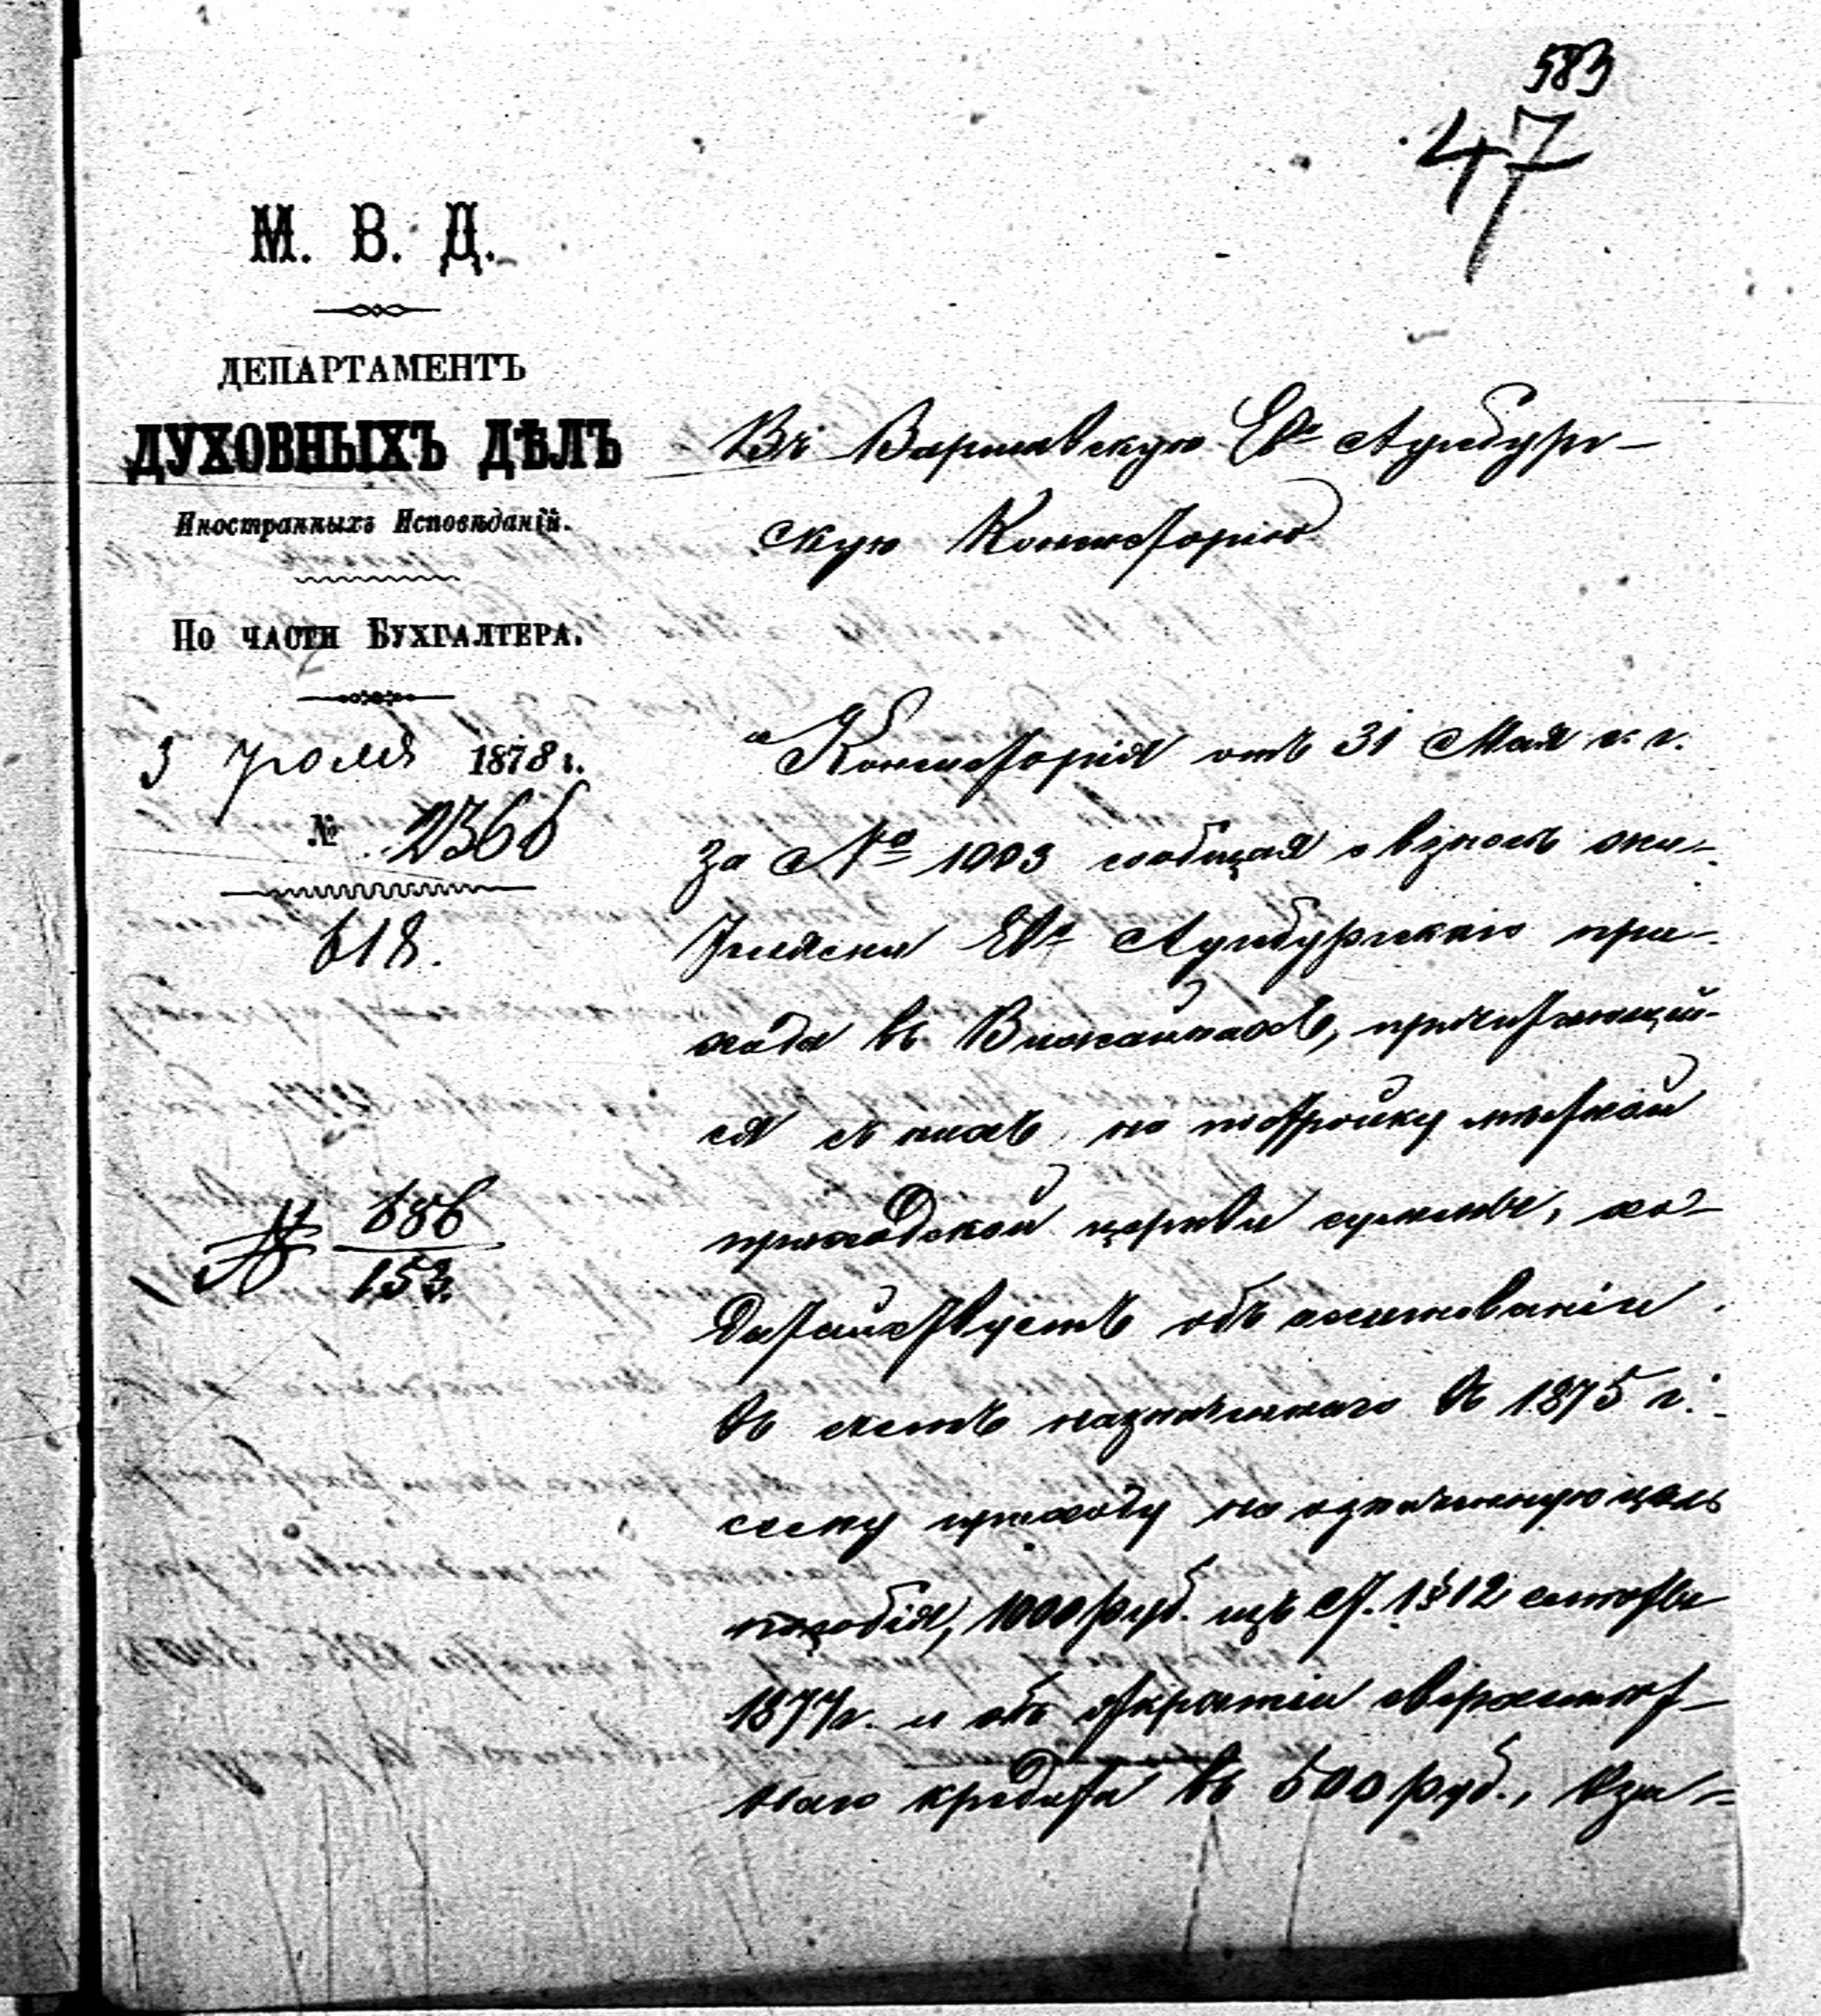 583
47
М. В. Д.
ДЕПАРТАМЕНТЪ
ДУХОВНЫХЪ ДѢЛЪ
Иностранныхъ Исповѣданій.
По части Бухгалтера.
3 Іюля 1878 г.
№ 2366
618.
Въ Варшавскую Ев. Аугсбург-
скую Консисторію
Консисторія отъ 31 Мая с. г.
за № 1003 сообщая о взносѣ жи-
телями Ев. Аугсбургскаго при-
хода въ Вижайнахъ, причитающей-
ся съ нихъ на постройку мѣстной
приходской церкви суммы, хо-
датайствуетъ объ ассигнованіи
въ счетъ назначеннаго въ 1875 г.
сему приходу на означенную цѣль
пособія, 1000 руб. изъ ст. 1 § 12 смѣты
1877 г. и объ открытіи сверхсмѣт-
наго кредита въ 500 руб., вза-
№ 686
153.